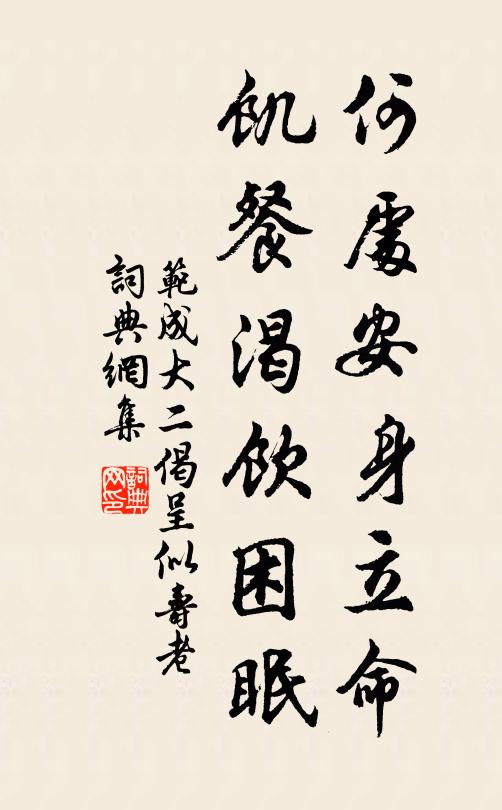 何處安身立命
飢餐渴飲困眠
範成大二偈呈似壽老
詞典網集
詞典網印